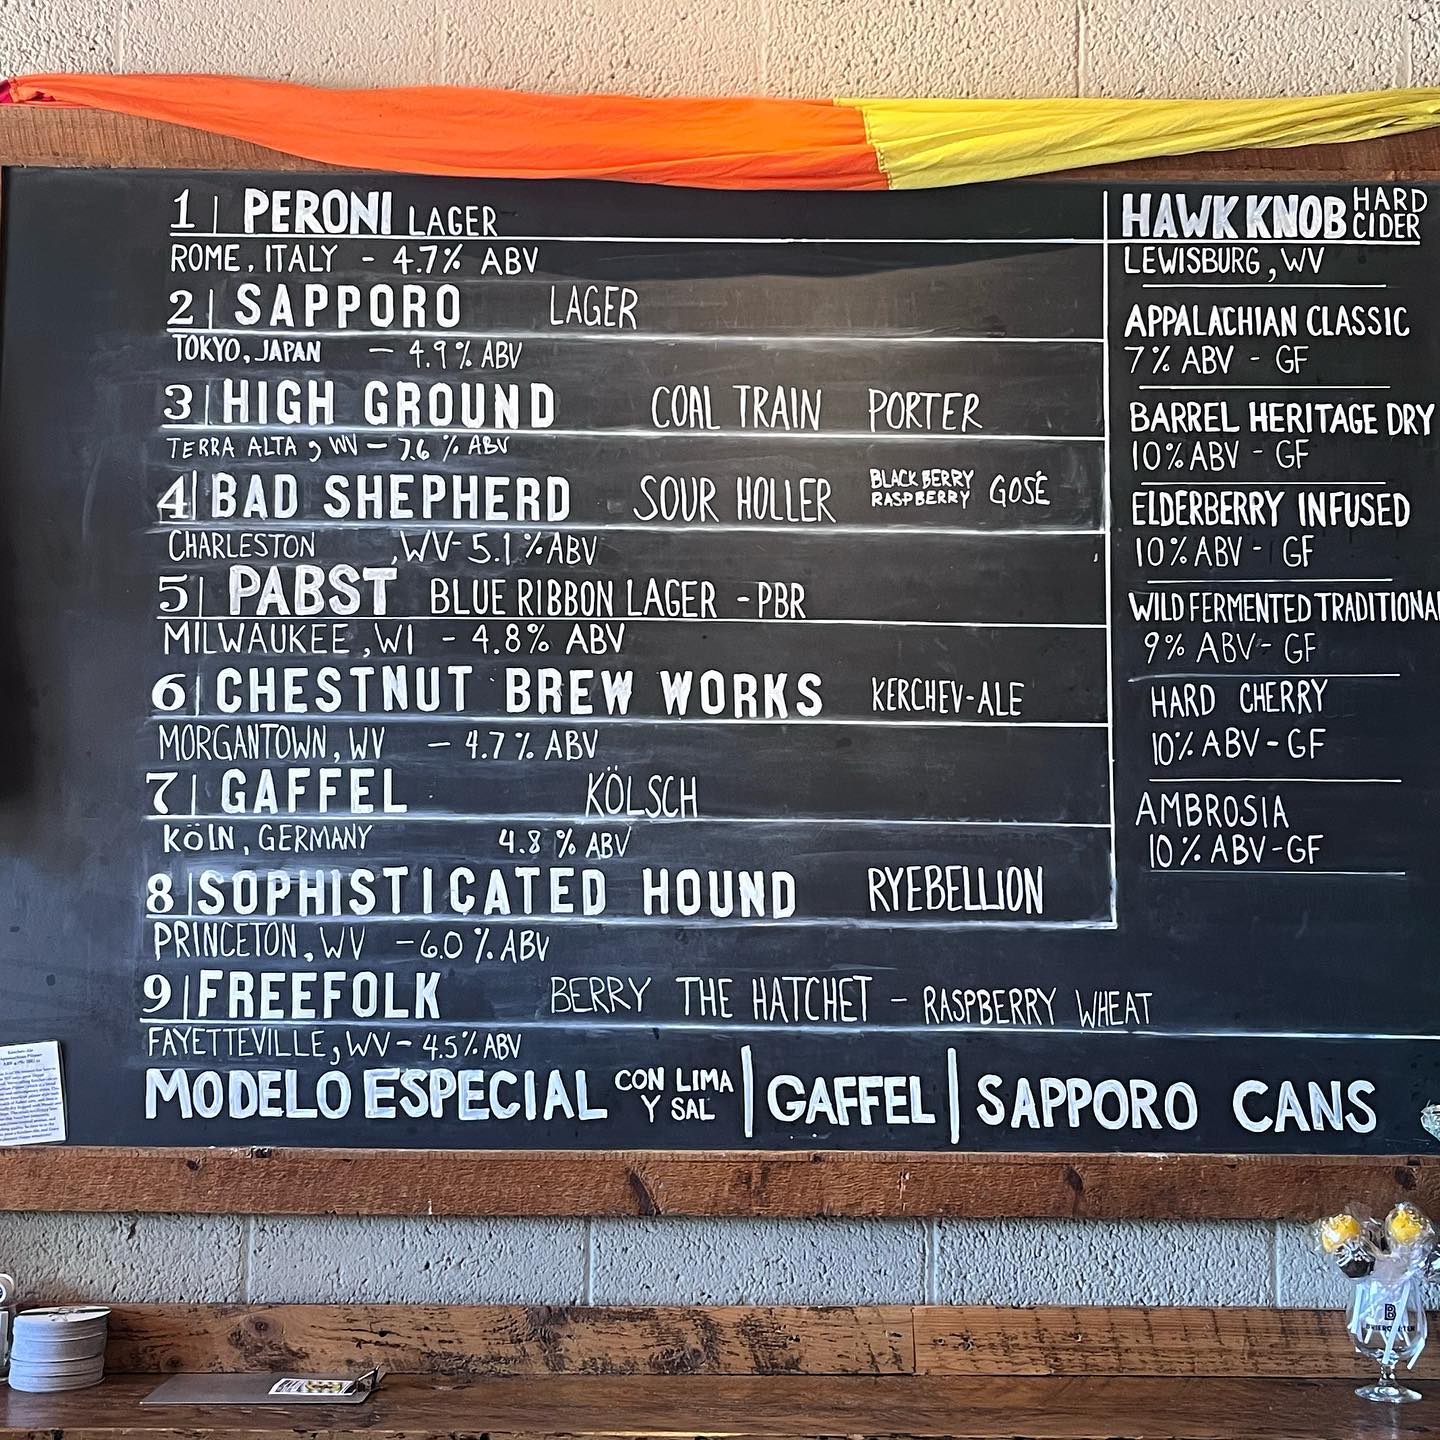 1 | PERONI LAGER
ROME, ITALY - 4.7% ABV
2 | SAPPORO LAGER
TOKYO, JAPAN - 4.9% ABV
3 | HIGH GROUND COAL TRAIN PORTER
TERRA ALTA, WV - 7.6 % ABV
4 | BAD SHEPHERD SOUR HOLLER BLACKBERRY RASPBERRY GOSÉ
CHARLESTON , WV - 5.1 % ABV
5 | PABST BLUE RIBBON LAGER - PBR
MILWAUKEE, WI - 4.8% ABV
6 | CHESTNUT BREW WORKS KERCHEV-ALE
MORGANTOWN, WV - 4.7% ABV
7 | GAFFEL KÖLSCH
KÖLN, GERMANY 4.8 % ABV
8 | SOPHISTICATED HOUND RYEBELLION
PRINCETON, WV - 6.0 % ABV
9 | FREEFOLK BERRY THE HATCHET - RASPBERRY WHEAT
FAYETTEVILLE, WV - 4.5% ABV
MODELO ESPECIAL CON LIMA Y SAL | GAFFEL | SAPPORO CANS
HAWK KNOB HARD CIDER
LEWISBURG, WV
APPALACHIAN CLASSIC
7% ABV - GF
BARREL HERITAGE DRY
10% ABV - GF
ELDERBERRY INFUSED
10% ABV - GF
WILD FERMENTED TRADITIONAL
9% ABV - GF
HARD CHERRY
10% ABV - GF
AMBROSIA
10% ABV - GF